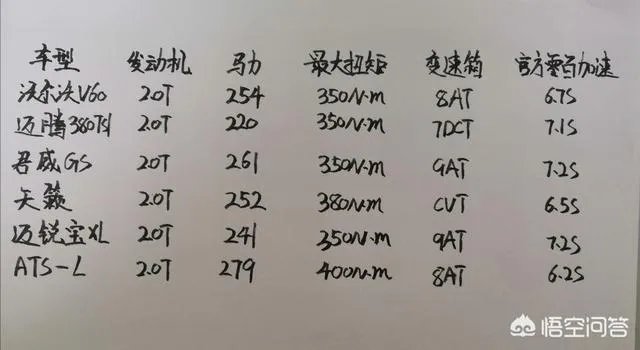 车型 发动机 马力 最大扭矩 变速箱 官方零百加速
沃尔沃V60 2.0T 254 350N·m 8AT 6.7S
迈腾380TSI 2.0T 220 350N·m 7DCT 7.1S
君威GS 20T 261 350N·m 9AT 7.2S
天籁 2.0T 252 380N·m CVT 6.5S
迈锐宝XL 2.0T 241 350N·m 9AT 7.2S
ATS-L 2.0T 279 400N·m 8AT 6.2S
悟空问答